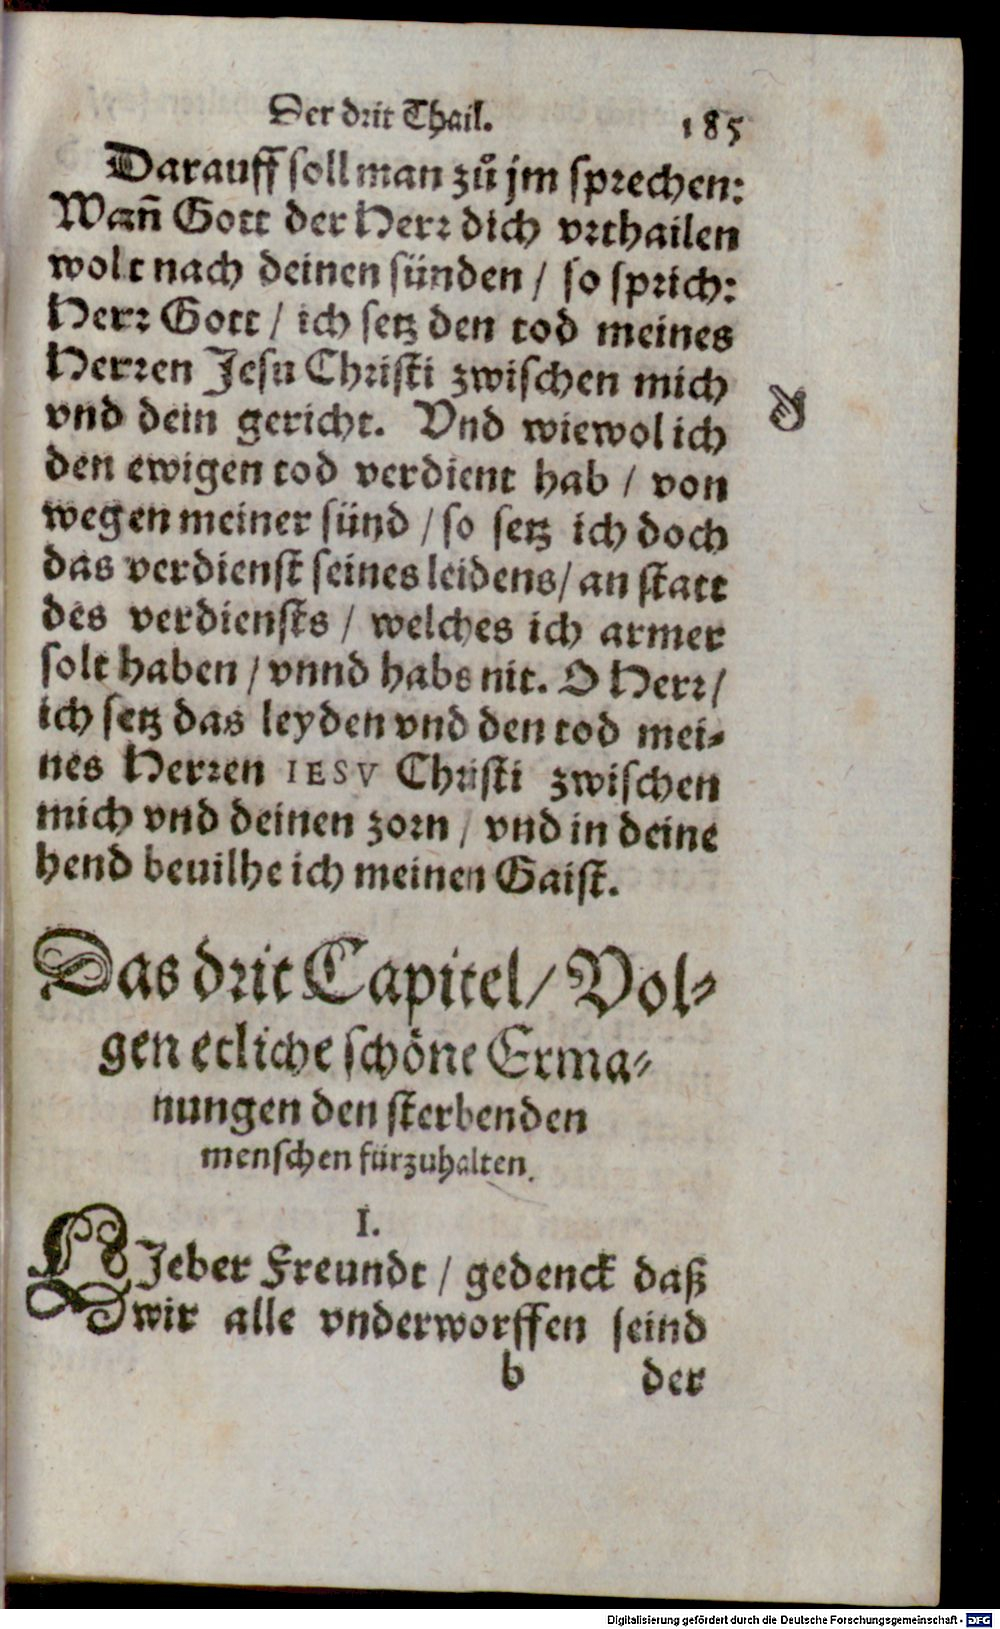 Der drit Thail. 185
Darauff soll man zů jm sprechen:
Wañ Gott der Herr dich vrthailen
wolt nach deinen sünden / so sprich:
Herr Gott / ich setz den tod meines
Herren Jesu Christi zwischen mich
vnd dein gericht. Vnd wiewol ich
den ewigen tod verdient hab / von
wegen meiner sünd / so setz ich doch
das verdienst seines leidens / an statt
des verdiensts / welches ich armer
solt haben / vnnd habs nit. O Herr /
ich setz das leyden vnd den tod mei-
nes Herren IESV Christi zwischen
mich vnd deinen zorn / vnd in deine
hend beuilhe ich meinen Gaist.
Das drit Capitel / Vol-
gen etliche schöne Erma-
nungen den sterbenden
menschen fürzuhalten.
I.
LJeber Freundt / gedenck daß
wir alle vnderworffen seind
b der
Digitalisierung gefördert durch die Deutsche Forschungsgemeinschaft - DFG